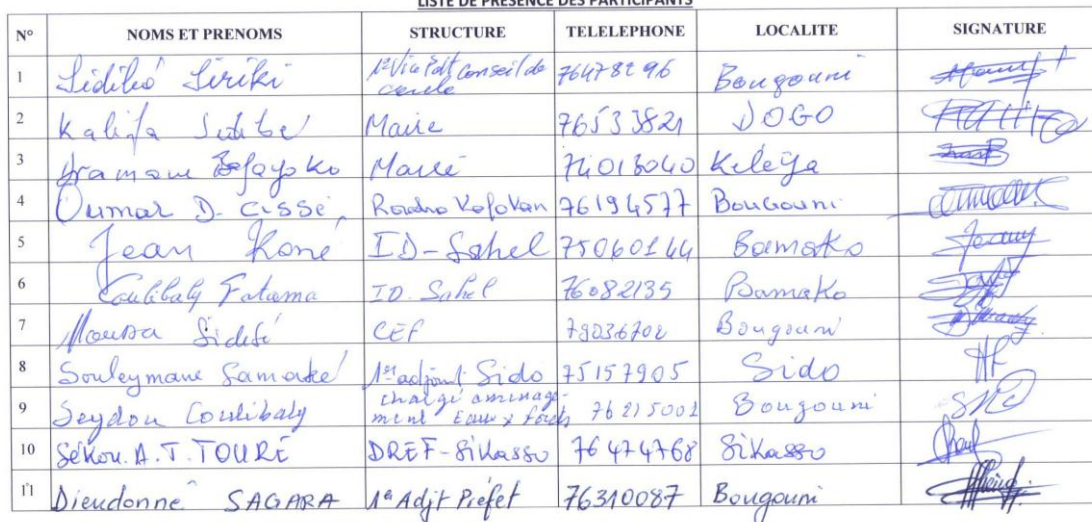 LISTE DE PRESENCE DES PARTICIPANTS
N° NOMS ET PRENOMS STRUCTURE TELELEPHONE LOCALITE SIGNATURE
1 Sidibé Siriki 1er Vice Pdt Conseil de cercle 76478296 Bougouni
2 Kalifa Sidibé Mairie 76533821 DOGO
3 Dramane Mairie 74013040 Keleya
4 Oumar D. CISSE, Kafokan 76194577 Bougouni
5 Jean Koné ID-Sahel 75060144 Bamako
6 Coulibaly Fatama ID. Sahel 76082135 Bamako
7 Moussa Sidibé CEF 79036702 Bougouni
8 Souleymane Samaké 1er adjoint Sido 75157905 Sido
9 Seydou Coulibaly chargé aménagement Eaux x forêts 76215002 Bougouni
10 Sékou. A. T. TOURE DREF-Sikasso 76474768 Sikasso
11 Dieudonné SAGARA 1er Adjt Préfet 76310087 Bougouni